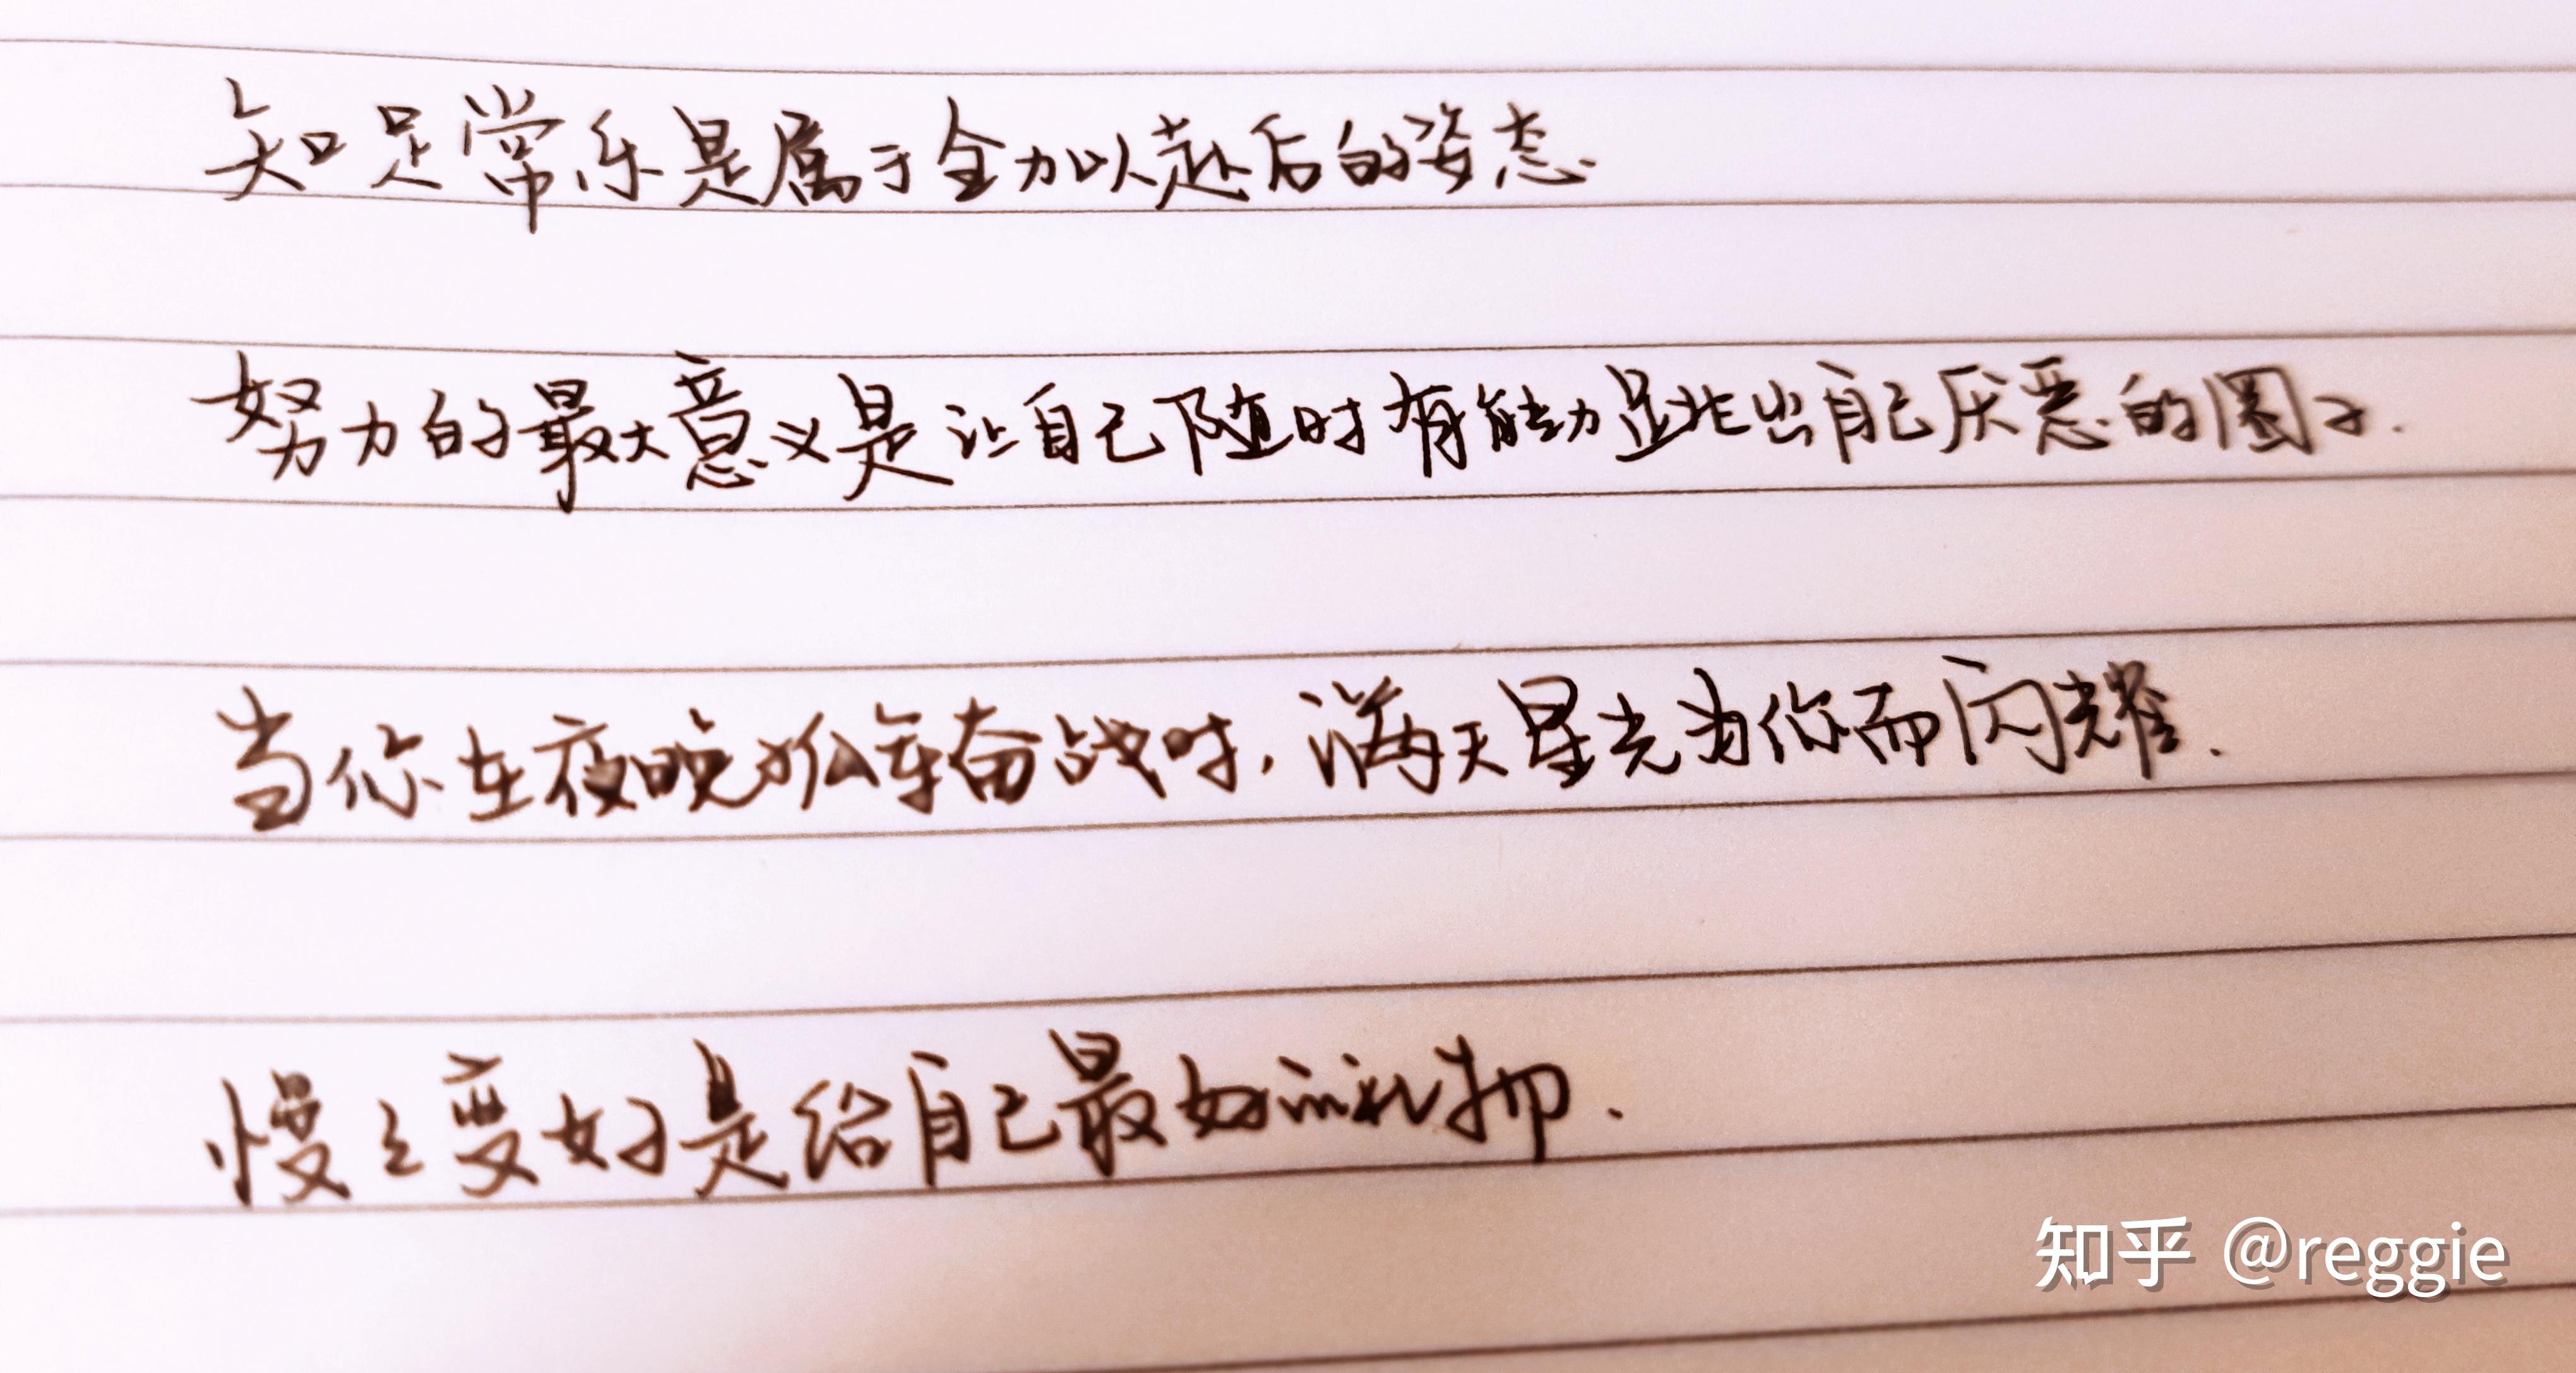 知足常乐是属于全力以赴后的姿态.
努力的最大意义是让自己随时有能力跳出自己厌恶的圈子.
当你在夜晚孤军奋战时,满天星光为你而闪耀.
慢々变好是给自己最好的礼物.
知乎 @reggie